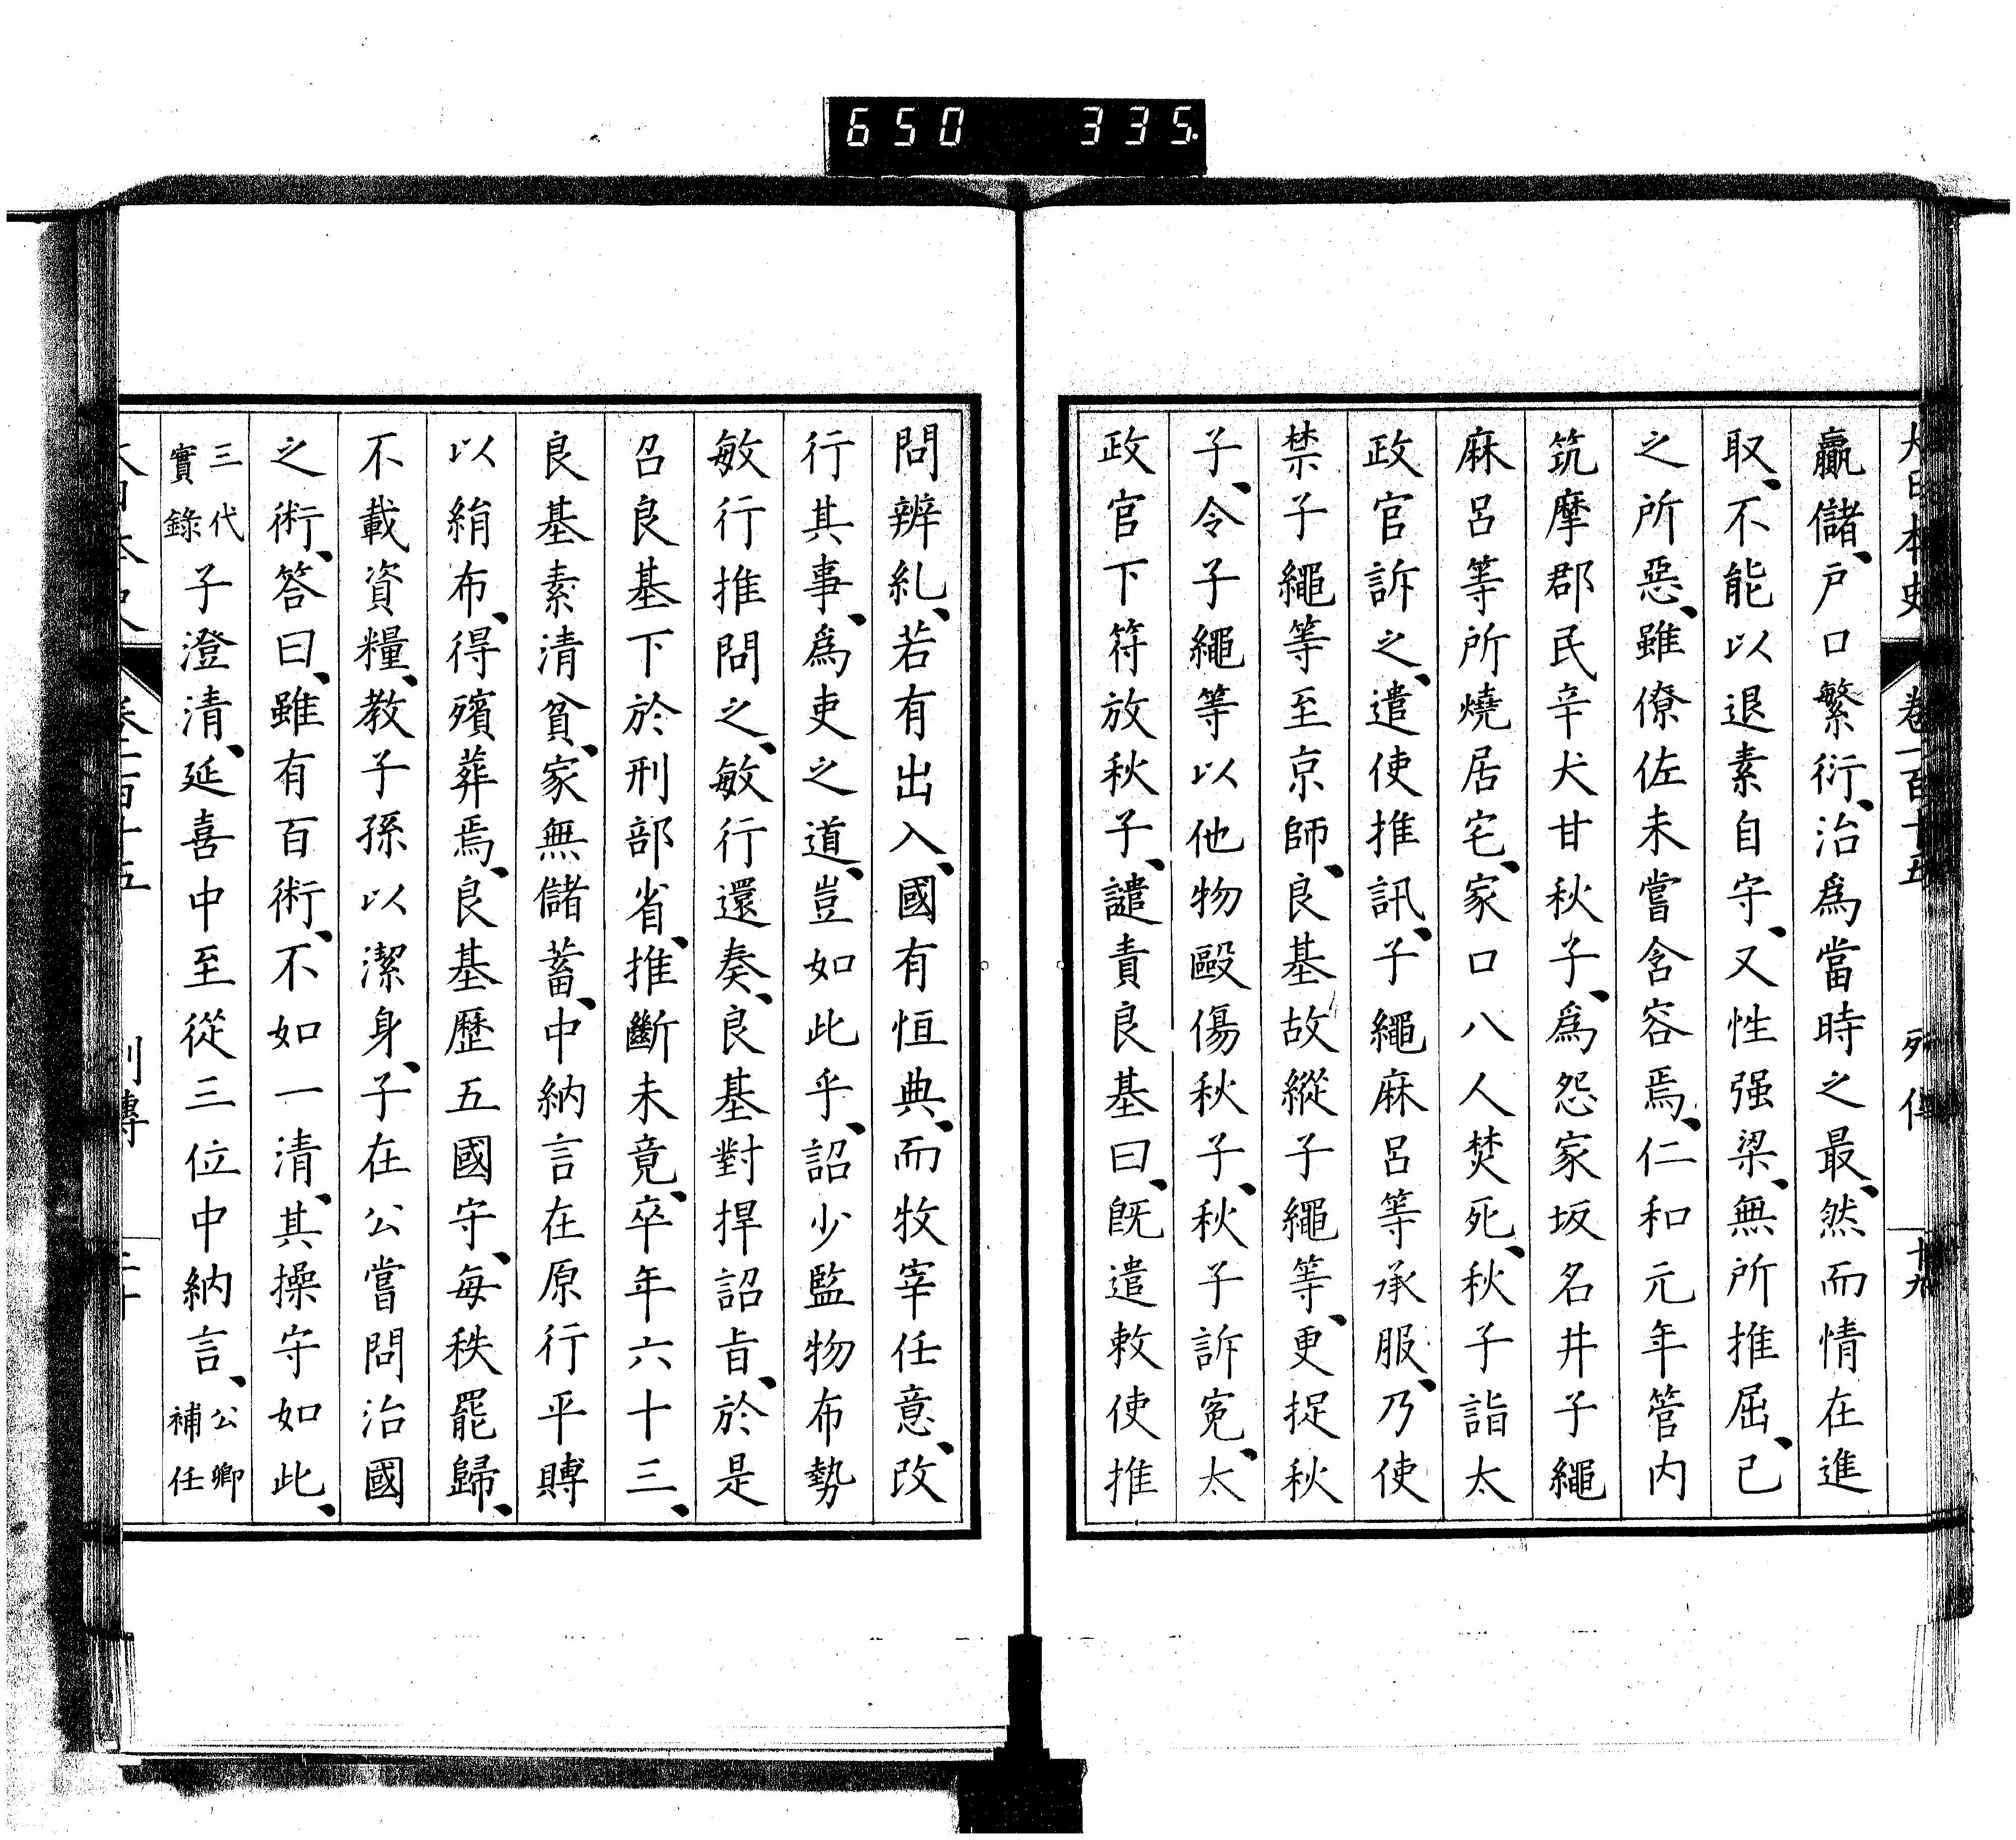 650 335
大日本史 卷一百十五 列傳 十九
贏儲、戶口繁衍、治爲當時之最、然而情在進
取、不能以退素自守、又性强梁、無所推屈、己
之所惡、雖僚佐未嘗含容焉、仁和元年管内
筑摩郡民辛犬甘秋子、爲怨家坂名井子繩
麻呂等所燒居宅、家口八人焚死、秋子詣太
政官訴之、遣使推訊、子繩麻呂等承服、乃使
禁子繩等至京師、良基故縱子繩等、更捉秋
子、令子繩等以他物毆傷秋子、秋子訴寃、太
政官下符放秋子、譴責良基曰、旣遣敕使推
問辨糺、若有出入、國有恒典、而牧宰任意、改
行其事、爲吏之道、豈如此乎、詔少監物布勢
敏行推問之、敏行還奏、良基對捍詔旨、於是
召良基下於刑部省、推斷未竟、卒年六十三、
良基素清貧、家無儲蓄、中納言在原行平賻
以絹布、得殯葬焉、良基歷五國守、每秩罷歸、
不載資糧、教子孫以潔身、子在公嘗問治國
之術、答曰、雖有百術、不如一清、其操守如此、
三代實錄 子澄清、延喜中至從三位中納言、公卿補任
大日本史 卷一百十五 列傳